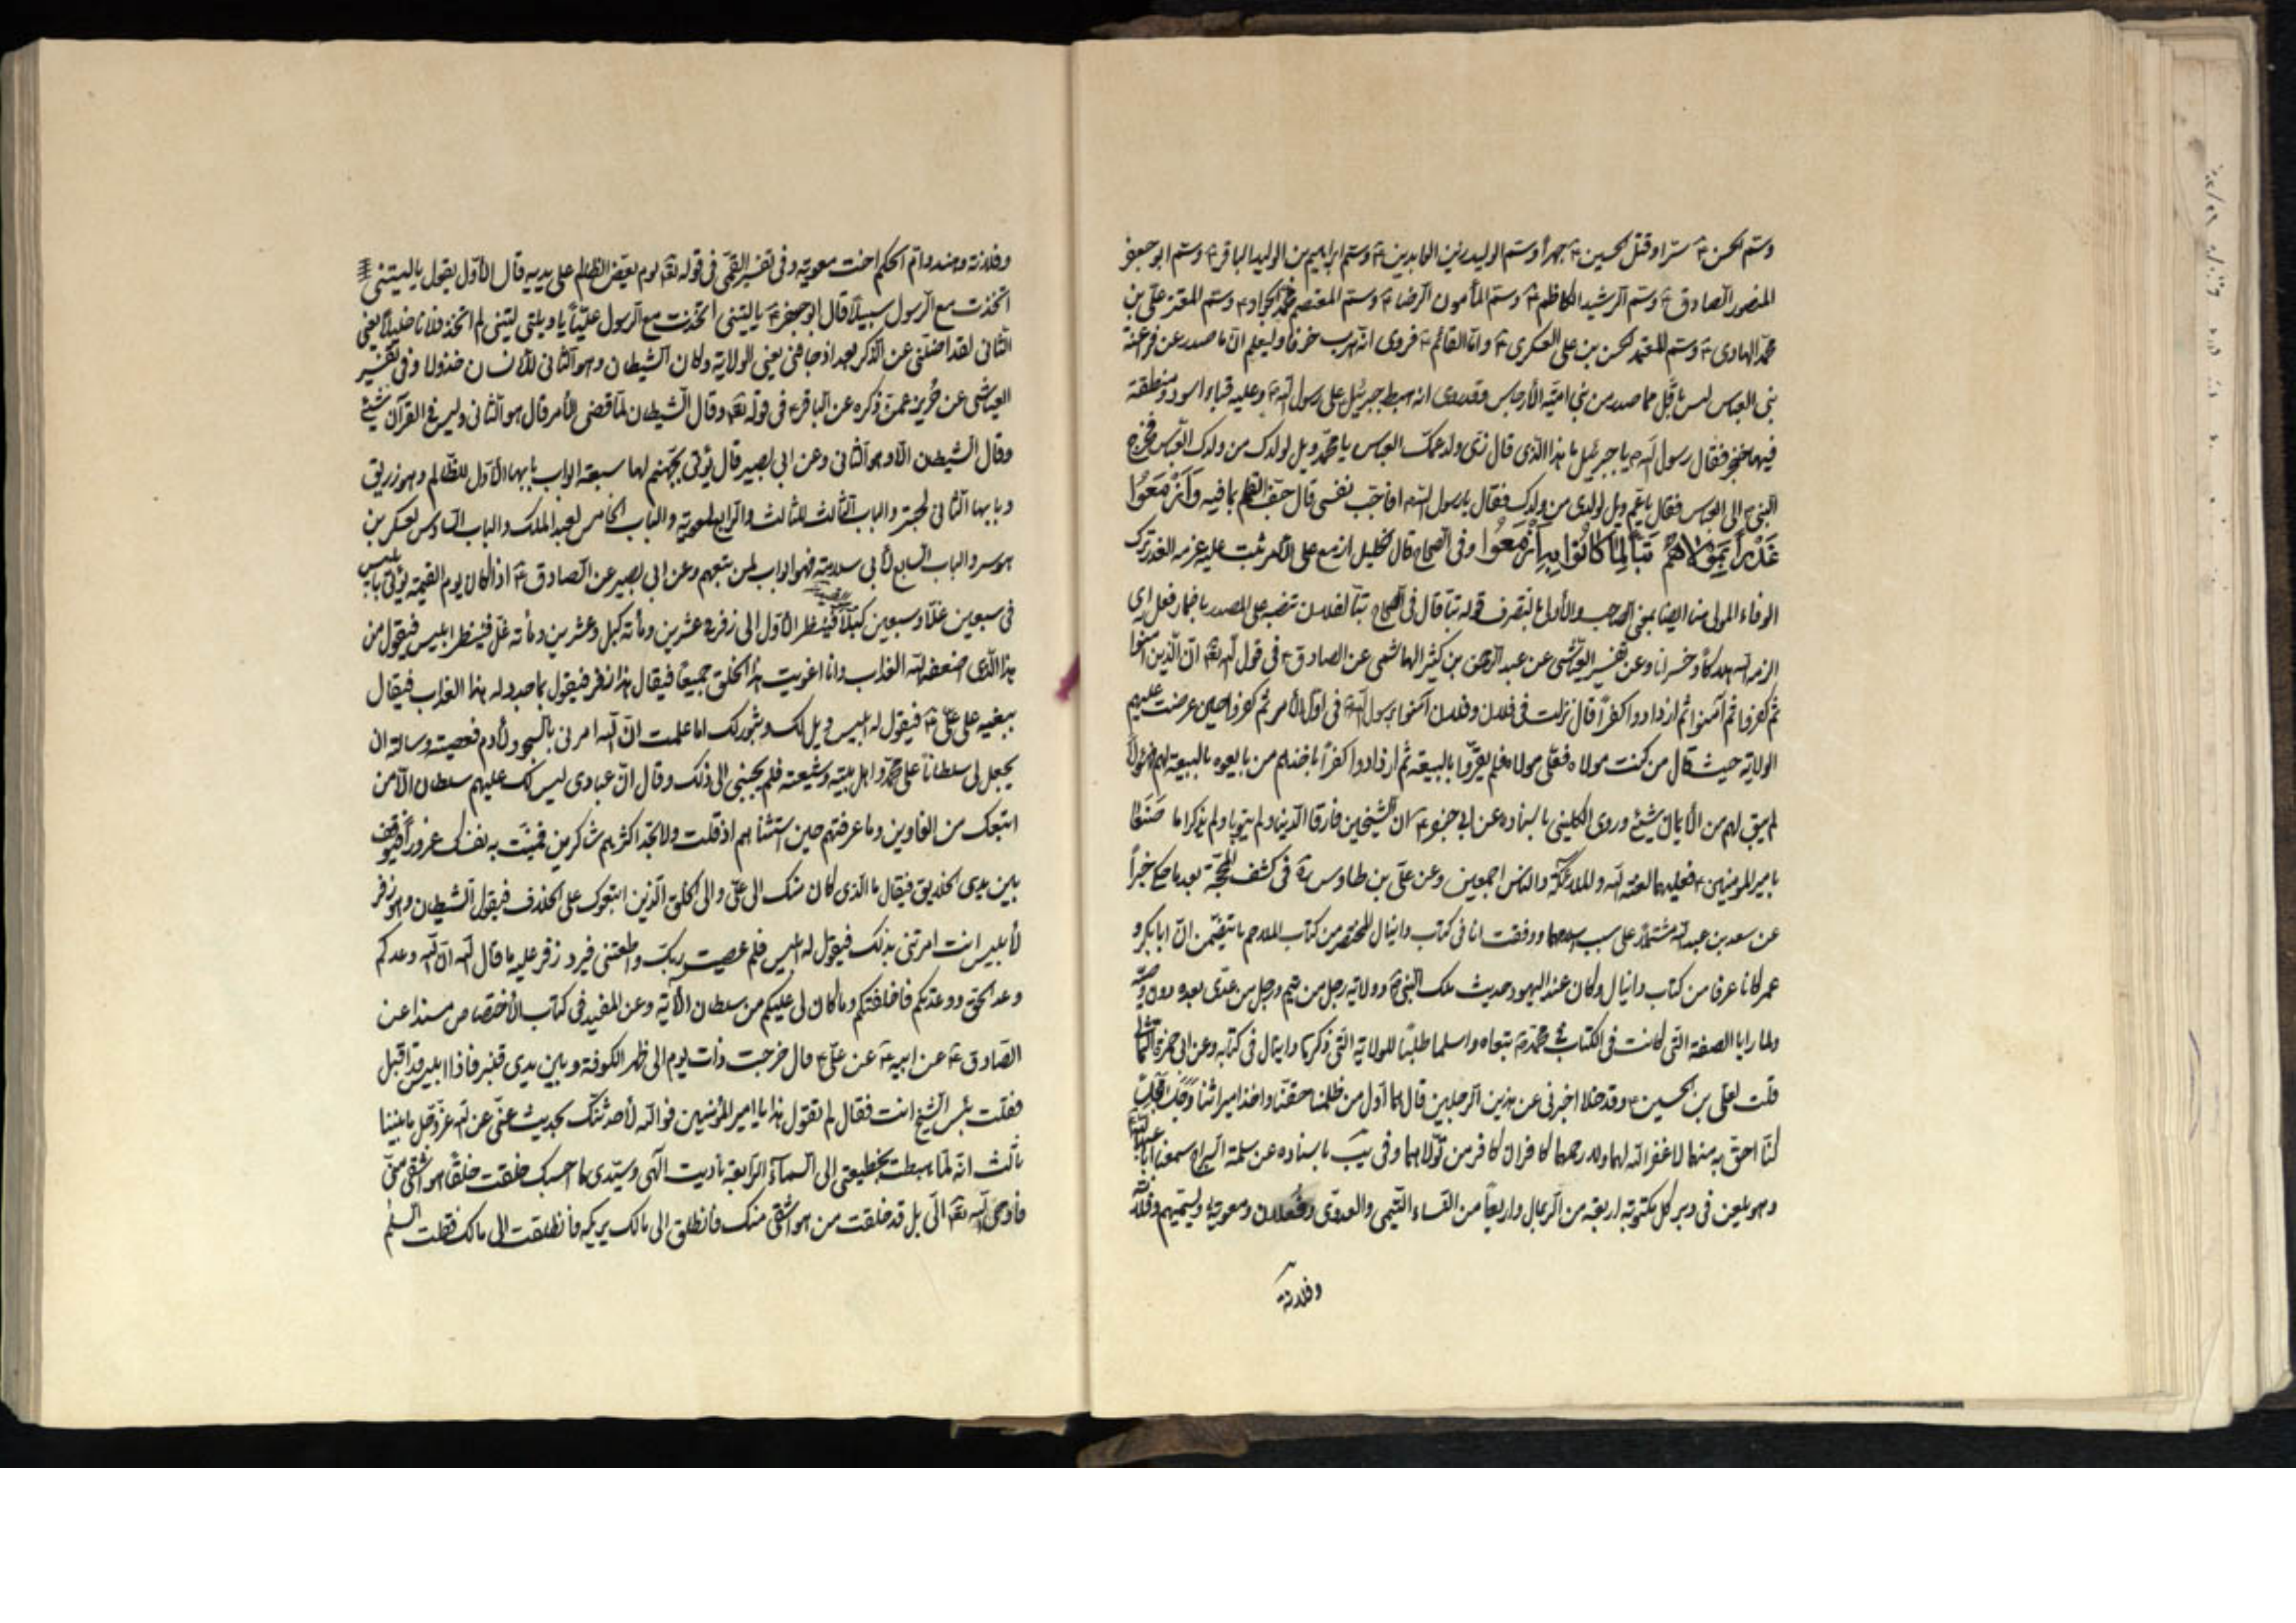 وسَمّ الحسن ع سرّا وقتل الحسين ع جهراً وسمّ الوليد زين العابدين ع وسمّ ابراهيم بن الوليد الباقر ع وسمّ ابو جعفر
المنصور الصادق ع وسمّ الرشيد الكاظم ع وسمّ المأمون الرضا ع وسمّ المعتصم محمد الجواد ع وسمّ المعتز علي بن
محمّد الهادى ع وسمّ المعتمد الحسن بن على العسكرى ع وامّا القائم ع فروى انّه هرب خوفا وليعلم انّ ما صدر عن فراعنة
بنى العباس ليس باقلّ مما صدر من بنى اميّة الأرجاس وقد روى انه هبط جبرئيل على رسول الله ص وعليه قباء اسود ومنطقة
فيها خنجر فقال رسول الله ص يا جبرئيل ما هذا الذى قال زىّ ولد عمّك العباس يا محمّد ويل لولدك من ولدك العباس فخرج
النبى ص الى العباس فقال يا عمّ ويل لولدى من ولدك فقال يا رسول الله افاجب نفسى قال جفّ القلم بما فيه وَاَزْمَعُوا
غَدْراً بِمَوْلاهُمُ تَبّاً لِمَا كَانُوا بِهِ اَزْمَعُوا وفى الصحاح قال الخليل ازمع على الأمر ثبت عليه عزمه الغدر ترك
الوفاء المولى هنا ايضا بمعنى الصاحب والأولى بالتصرف قوله تبّا قال فى الصحاح تبّا لفلان تنصبه على المصدر باضمار فعل اى
الزمه الله هلاكاً وخسرانا وعن تفسير العيّاشى عن عبد الرحمن بن كثير الهاشمى عن الصادق ع فى قول الله تعالى انّ الذين امنوا
ثم كفروا ثم آمنوا ثم ازدادوا كفراً قال نزلت فى فلان وفلان آمنوا برسول الله ص فى اول الأمر ثم كفروا حين عرضت عليهم
الولاية حيث قال من كنت مولاه فعلى مولاه فلم يقرّوا بالبيعة ثم ازدادوا كفراً باخذهم من بايعوه بالبيعة لهم فهؤلاء
لم يبق لهم من الأيمان شيئ وروى الكلينى باسناده عن ابى جعفر ع ان الشيخين فارقا الدنيا ولم يتوبا ولم يذكرا ما صنعا
بامير المؤمنين ع فعليهما لعنة الله والملائكة والناس اجمعين وعن علىّ بن طاوس ره فى كشف المحجّة بعد ما حكى خبراً
عن سعد بن عبد الله مشتملاً على سبب اسلامهما ووقفت انا فى كتاب دانيال المختصر من كتاب الملاحم ما يتضمّن انّ ابا بكر و
عمر كانا عرفا من كتاب دانيال وكان عند اليهود حديث ملك النبى ص وولاية رجل من تيم ورجل من عدى بعده دون وصيّه
ولما رايا الصفة التى كانت فى الكتاب فى محمّد ص تبعاه واسلما طلبًا للولاية التى ذكرها دانيال فى كتابه وعن ابى حمزة الثمالى
قلت لعلى بن الحسين ع وقد خلا اخبرنى عن هذين الرجلين قال هما اول من ظلمنا حقّنا واخذا ميراثنا وجلسا مجلسا
كنّا احق به منهما لا غفر الله لهما ولا رحمهما كافران كافر من تولاهما وفى يب باسناده عن سلمة السراج سمعنا ابا عبد الله ع
وهو يلعن فى دبر كل مكتوبة اربعة من الرجال واربعاً من النساء التيمى والعدوى وفعلان ومعوية ويسمّيهم وفلانة
وفلانة
وفلانة وهند وام الحكم اخت معوية وفى تفسير القمّى فى قوله تعالى يوم يعضّ الظالم على يديه قال الأوّل يقول يا ليتنى
اتّخذت مع الرسول سبيلاً قال ابو جعفر ع يا ليتنى اتّخذت مع الرسول عليّاً يا ويلتى ليتنى لم اتخذ فلانا خليلاً يعنى
الثانى لقد اضلنى عن الذكر بعد اذ جاءنى يعنى الولاية وكان الشيطان وهو الثانى للأنسان خذولا وفى تفسير
العياشى عن حُريز عمن ذكره عن الباقر ع فى قوله تعالى وقال الشيطان لمّا قضى الأمر قال هو الثانى وليس فى القرآن شيئ
وقال الشيطن الّا وهو الثانى وعن ابى بصير قال يؤتى بجهنم لها سبعة ابواب بابها الأوّل للظّالم وهو زريق
وبابها الثانى لحبتر والباب الثالث للثالث والرابع لمعوية والباب الخامس لعبد الملك والباب السادس لعسكر بن
هوسر والباب السابع لأبى سلامة فهم ابواب لمن تبعهم وعن ابى بصير عن الصادق ع اذا كان يوم القيمة يؤتى بابليس
فى سبعين غلّا وسبعين كبلاً فينظر الأوّل الى زفر فى عشرين ومأة كبل وعشرين ومأة غلّ فينظر ابليس فيقول من
هذا الذى اضعفه الله العذاب وانا اغويت هذا الخلق جميعاً فيقال هذا زفر فيقول بما صدر له هذا العذاب فيقال
ببغيه على علىّ ع فيقول له ابليس ويل لك وثبور لك اما علمت انّ الله امرنى بالسجود لأدم فعصيته وسالته ان
يجعل لى سلطاناً على محمّد واهل بيته وشيعته فلم يجبنى الى ذلك وقال انّ عبادى ليس لك عليهم سلطان الّا من
اتبعك من الغاوين وما عرفتهم حين استثناهم اذ قلت ولا تجد اكثرهم شاكرين فمنّت به نفسك غروراً فيوقف
بين يدى الخلايق فيقال ما الذى كان منك الى علىّ والى الخلق الذين اتبعوك على الخلاف فيقول الشيطان وهو زفر
لأبليس انت امرتنى بذلك فيقول له ابليس فلم عصيت ربك واطعتنى فيرد زفر عليه ما قال الله انّ الله وعدكم
وعد الحق ووعدتكم فاخلفتكم وما كان لى عليكم من سلطان الأية وعن المفيد فى كتاب الأختصاص مسندا عن
الصادق ع عن ابيه ع عن علىّ ع قال خرجت ذات يوم الى ظهر الكوفة وبين يدى قنبر فاذا ابليس قد اقبل
فقلت بئس الشيخ انت فقال لم تقول هذا يا امير المؤمنين فوالله لأحدثنّك بحديث عنّى عن الله عزّوجل ما بيننا
ثالث انّه لمّا هبطت بخطيئتى الى السمآء الرابعة ناديت الهى وسيّدى ما احسبك خلقت خلقاً هو اشقى منّى
فاوحى الله تعالى الىّ بل قد خلقت من هو اشقى منك فانطلق الى مالك يريكه فانطلقت الى مالك فقلت السلم